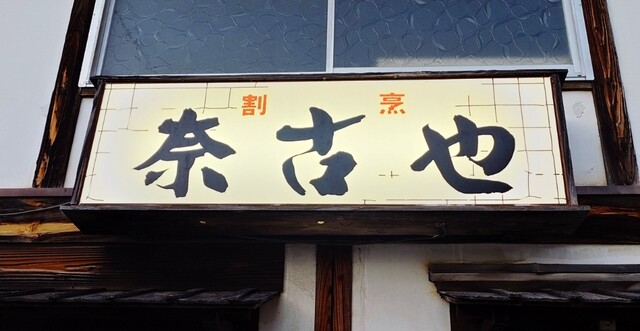 割烹
奈古也